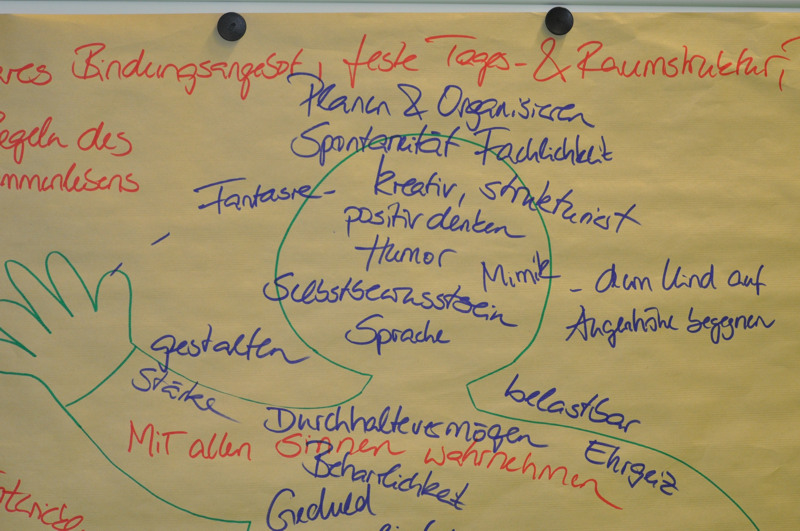 Bindungsangebot, feste Tages- & Raumstruktur,
Planen & Organisieren
Regeln des
Spontaneität Fachlichkeit
Fantasie - kreativ, strukturiert
positiv denken
Humor
Mimik - dem Kind auf
Selbstbewusstsein
Augenhöhe begegnen
Sprache
gestalten
Stärke
belastbar
Durchhaltevermögen
Mit allen Sinnen wahrnehmen
Ehrgeiz
Beharrlichkeit
Geduld